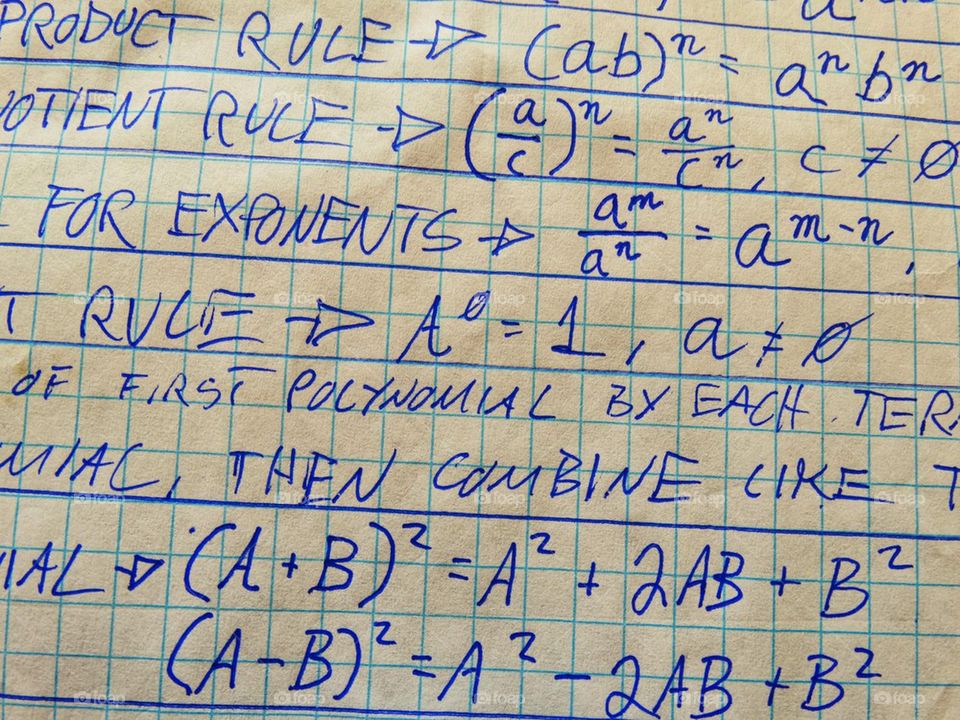 PRODUCT RULE → (ab)ⁿ = aⁿ bⁿ
RULE → (a/c)ⁿ = aⁿ/cⁿ, c ≠ 0
FOR EXPONENTS → aᵐ/aⁿ = aᵐ⁻ⁿ,
RULE → A⁰ = 1, a ≠ 0
OF FIRST POLYNOMIAL BY EACH
THEN COMBINE LIKE
→ (A + B)² = A² + 2AB + B²
(A - B)² = A² - 2AB + B²